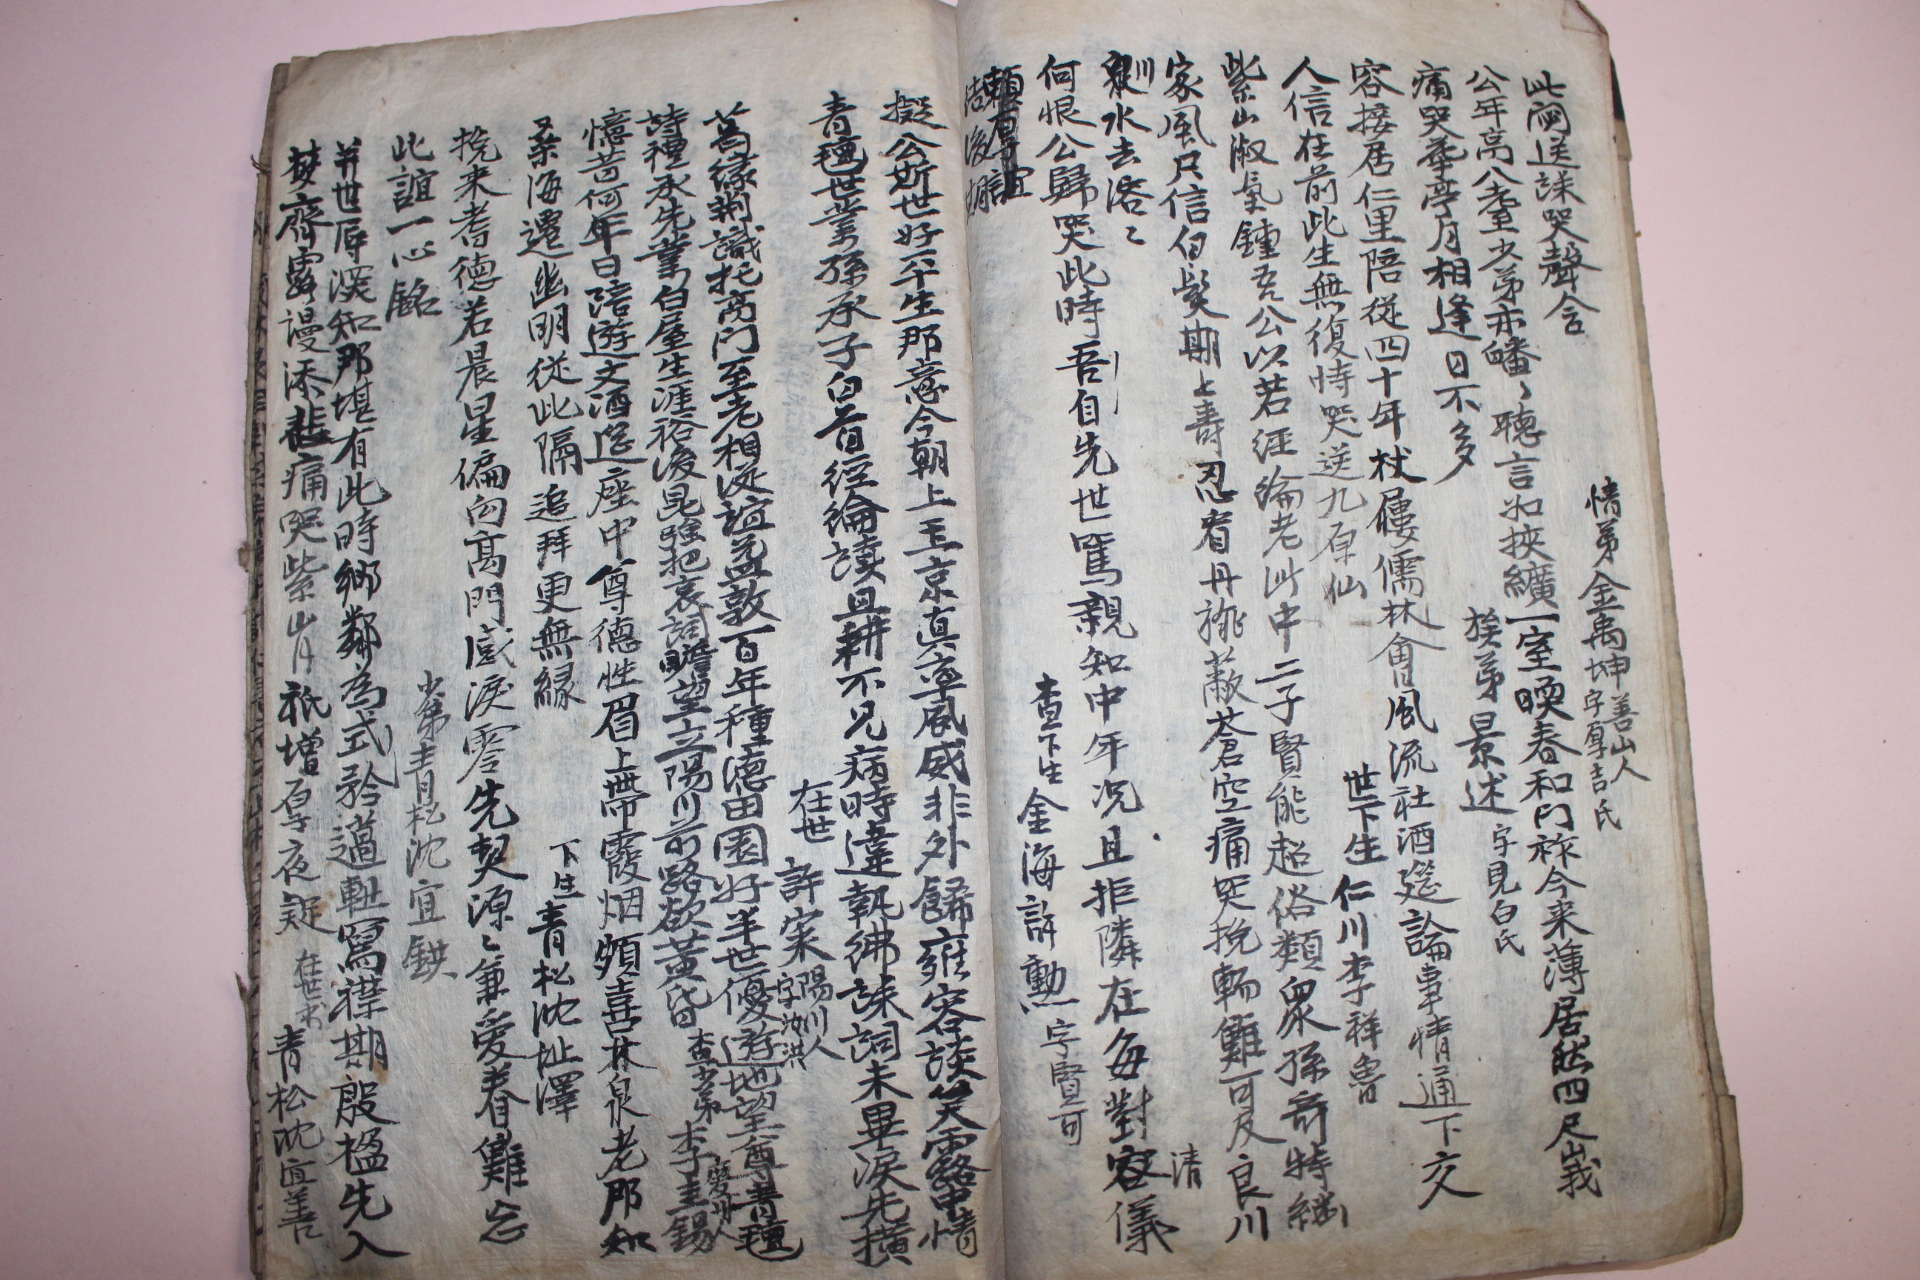 此 送誄哭聲含
情弟金禹坤善山人字厚吉氏
公年高八耋少弟亦皤〻聽言如挾纊一室喚春和門祚今来薄居然四尺峩
痛哭華亭月相逢日不多
族弟景述字見白氏
容接居仁里陪從四十年杖屨儒林會風流社酒筵論事情通下交
人信在前此生無復時哭送九原仙
世下生仁川李祥魯
紫山淑氣鍾吾公以若經綸老此中二子賢能超俗類衆孫 特継
家風只信白髮期上壽忍看丹旐蔽蒼空痛哭挽輀難可及良川
泉水去溶〻
何恨公歸哭此時吾自先世篤親知中年况且拒隣在每對容儀清
査下生金海許勳字賢可
頼厚誼
結後期
擬公斯世好平生那意今朝上玉京真率風威非外飾雍容談笑露中情
青氊世業孫承子白首經綸讀且耕不見病時違執紼誄詞未畢淚先橫
在世許寀陽川人字汝洪
葛緣荆識托高门至老相從誼益敦百年種德田園好半世優遊地望尊青氊
詩禮承先業白屋生涯裕後昆強把哀詞瞻望立陽川前路欲黃昏
査少弟李圭錫慶州人
憶昔何年日陪遊文酒筵座中尊德性眉上帶霞烟頗喜林泉老那知
桑海遷幽明從此隔追拜更無緣
下生青松沈 澤
挽来耆德若晨星偏向高門感淚零先契源〻兼愛眷難忘
此誼一心銘
少弟青松沈宜鉷
并世辱深知那堪有此時鄉鄰為式矜薖軸寫襟期殷楹先入
夢齊露謾添悲痛哭紫山月祇增厚夜疑
在世 青松沈宜善